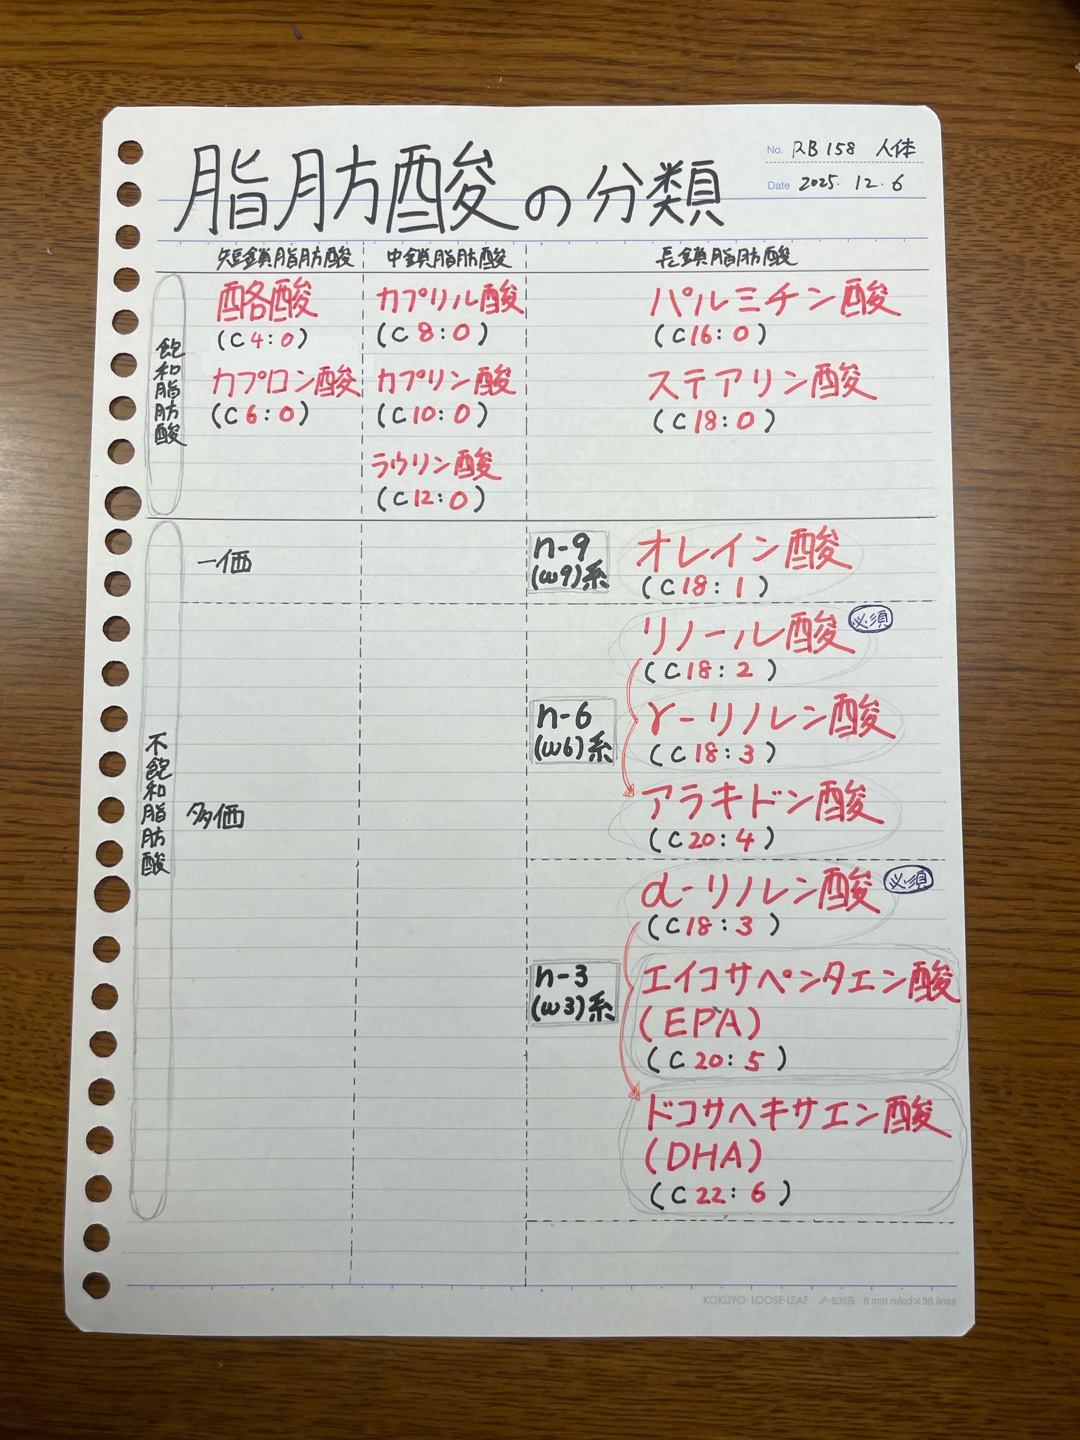 No. RB 158 人体
Date 2025. 12. 6
脂肪酸の分類
短鎖脂肪酸 中鎖脂肪酸 長鎖脂肪酸
飽和脂肪酸
酪酸 カプリル酸 パルミチン酸
(C4:0) (C8:0) (C16:0)
カプロン酸 カプリン酸 ステアリン酸
(C6:0) (C10:0) (C18:0)
ラウリン酸
(C12:0)
不飽和脂肪酸
一価
n-9
(ω9)系
オレイン酸
(C18:1)
多価
n-6
(ω6)系
リノール酸 必須
(C18:2)
γ-リノレン酸
(C18:3)
アラキドン酸
(C20:4)
n-3
(ω3)系
α-リノレン酸 必須
(C18:3)
エイコサペンタエン酸
(EPA)
(C20:5)
ドコサヘキサエン酸
(DHA)
(C22:6)
KOKUYO LOOSE-LEAF ノ-836B 6 mm ruled×36 lines